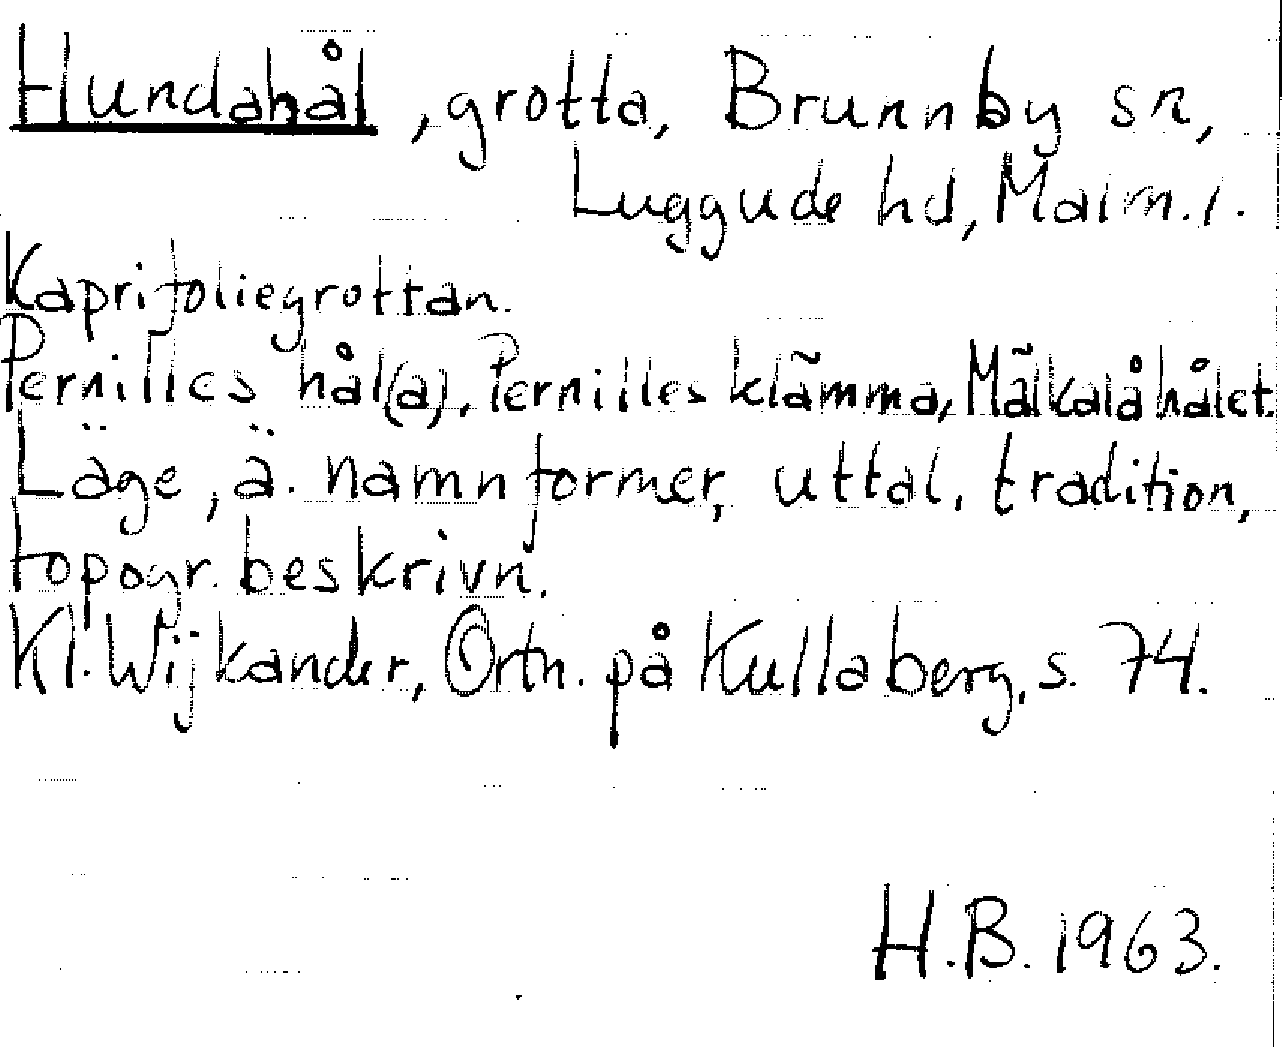 Hundahål, grotta, Brunnby sn,
Luggude hd, Malm. l.
Kaprifoliegrottan.
Pernilles hål(a), Pernilles klämma, Målkalåhålet
Läge, ä. namnformer, uttal, tradition,
topogr. beskrivn.
Kl. Wijkander, Ortn. på Kullaberg, s. 74.
H.B. 1963.